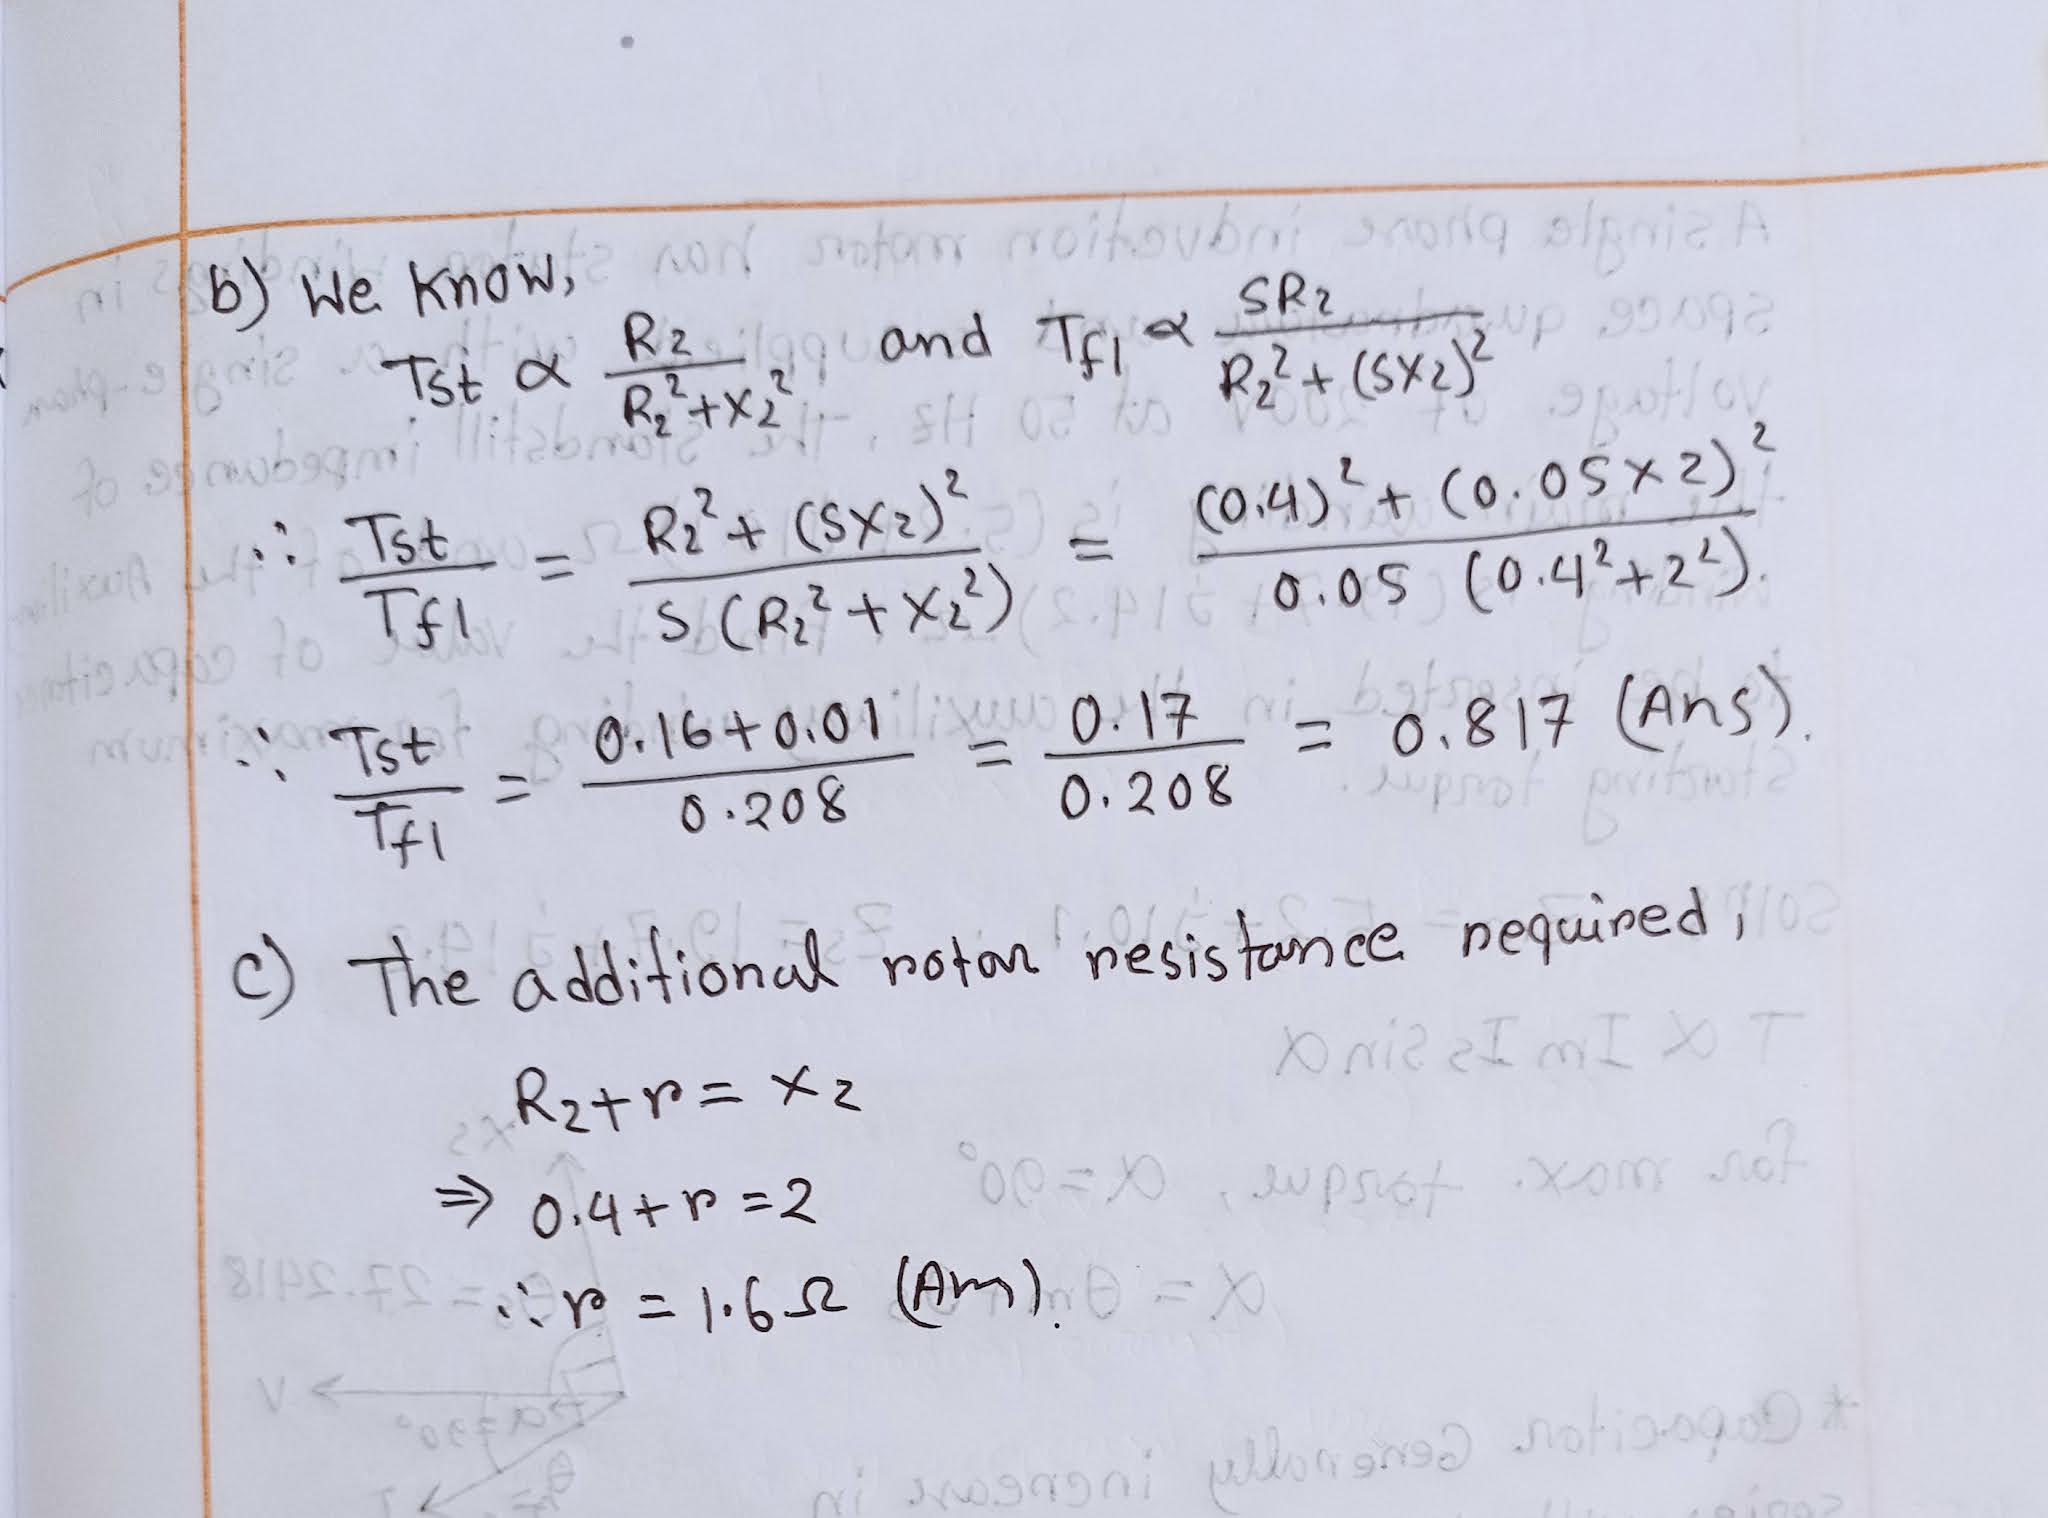 b) We know,
Tst ∝ R₂/(R₂²+X₂²) and Tfl ∝ SR₂/(R₂²+(SX₂)²)
∴ Tst/Tfl = (R₂²+(SX₂)²)/(S(R₂²+X₂²)) = ((0.4)²+(0.05×2)²)/(0.05 (0.4²+2²)).
∴ Tst/Tfl = (0.16+0.01)/0.208 = 0.17/0.208 = 0.817 (Ans).
c) The additional rotor resistance required,
R₂+r = X₂
⇒ 0.4+r=2
∴ r = 1.6Ω (Ans).